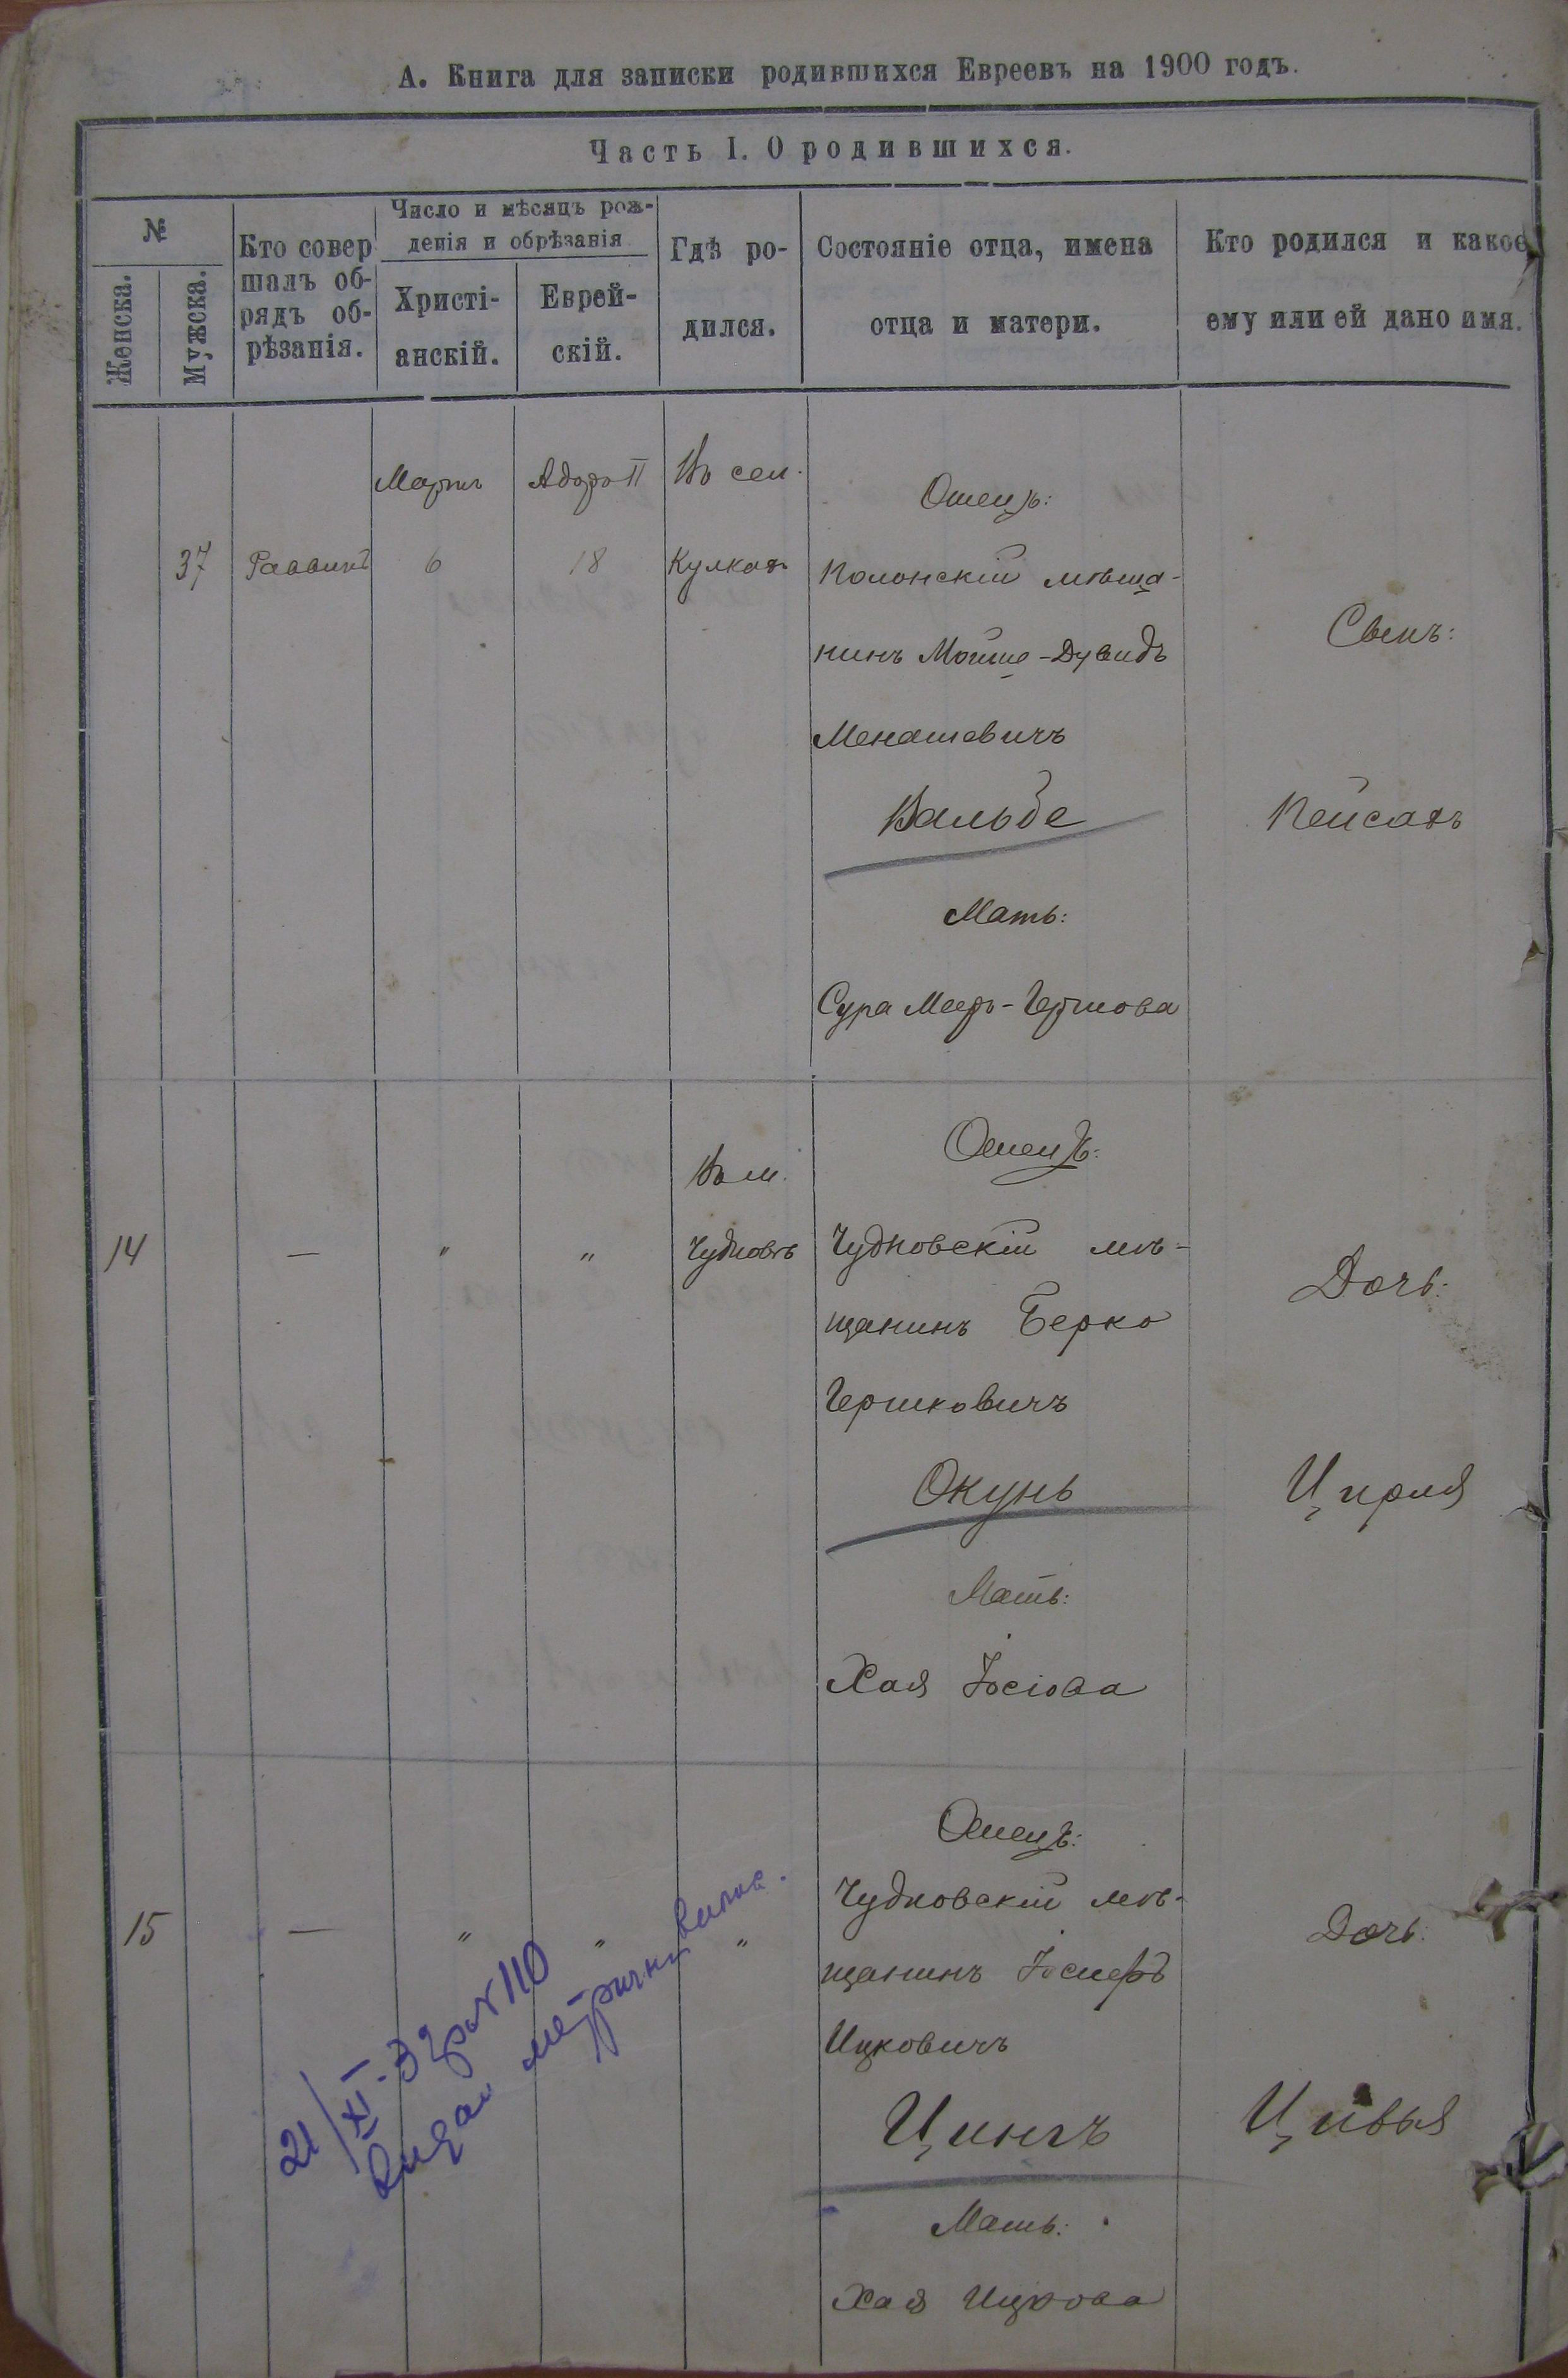 А. Книга для записки родившихся Евреевъ на 1900 годъ.
Часть I. О родившихся.
№
Женска.
Мужска.
Кто совер
шалъ об-
рядъ об-
рѣзанія.
Число и мѣсяцъ рож-
денія и обрѣзанія
Христі-
анскій.
Еврей-
скій.
Гдѣ ро-
дился.
Состояніе отца, имена
отца и матери.
Кто родился и какое
ему или ей дано имя.
37
Раввинъ
Мартъ
6
Адаръ II
18
Въ сел.
Кулкахъ
Отецъ:
Полонскій мѣща-
нинъ Мойше-Дувидъ
Менашевичъ
Вальбе
Мать:
Сура Мееръ-Гершова
Сынъ:
Пейсахъ
14
—
"
"
Въ м.
Чудновѣ
Отецъ:
Чудновскій мѣ-
щанинъ Берко
Гершковичъ
Окунь
Мать:
Хая Іосіова
Дочь:
Цирля
15
—
"
"
"
Отецъ:
Чудновскій мѣ-
щанинъ Іосифъ
Ицковичъ
Цингъ
Мать:
Хая Ицкова
Дочь:
Цивья
21/XI-3 110
видан метричний випис.